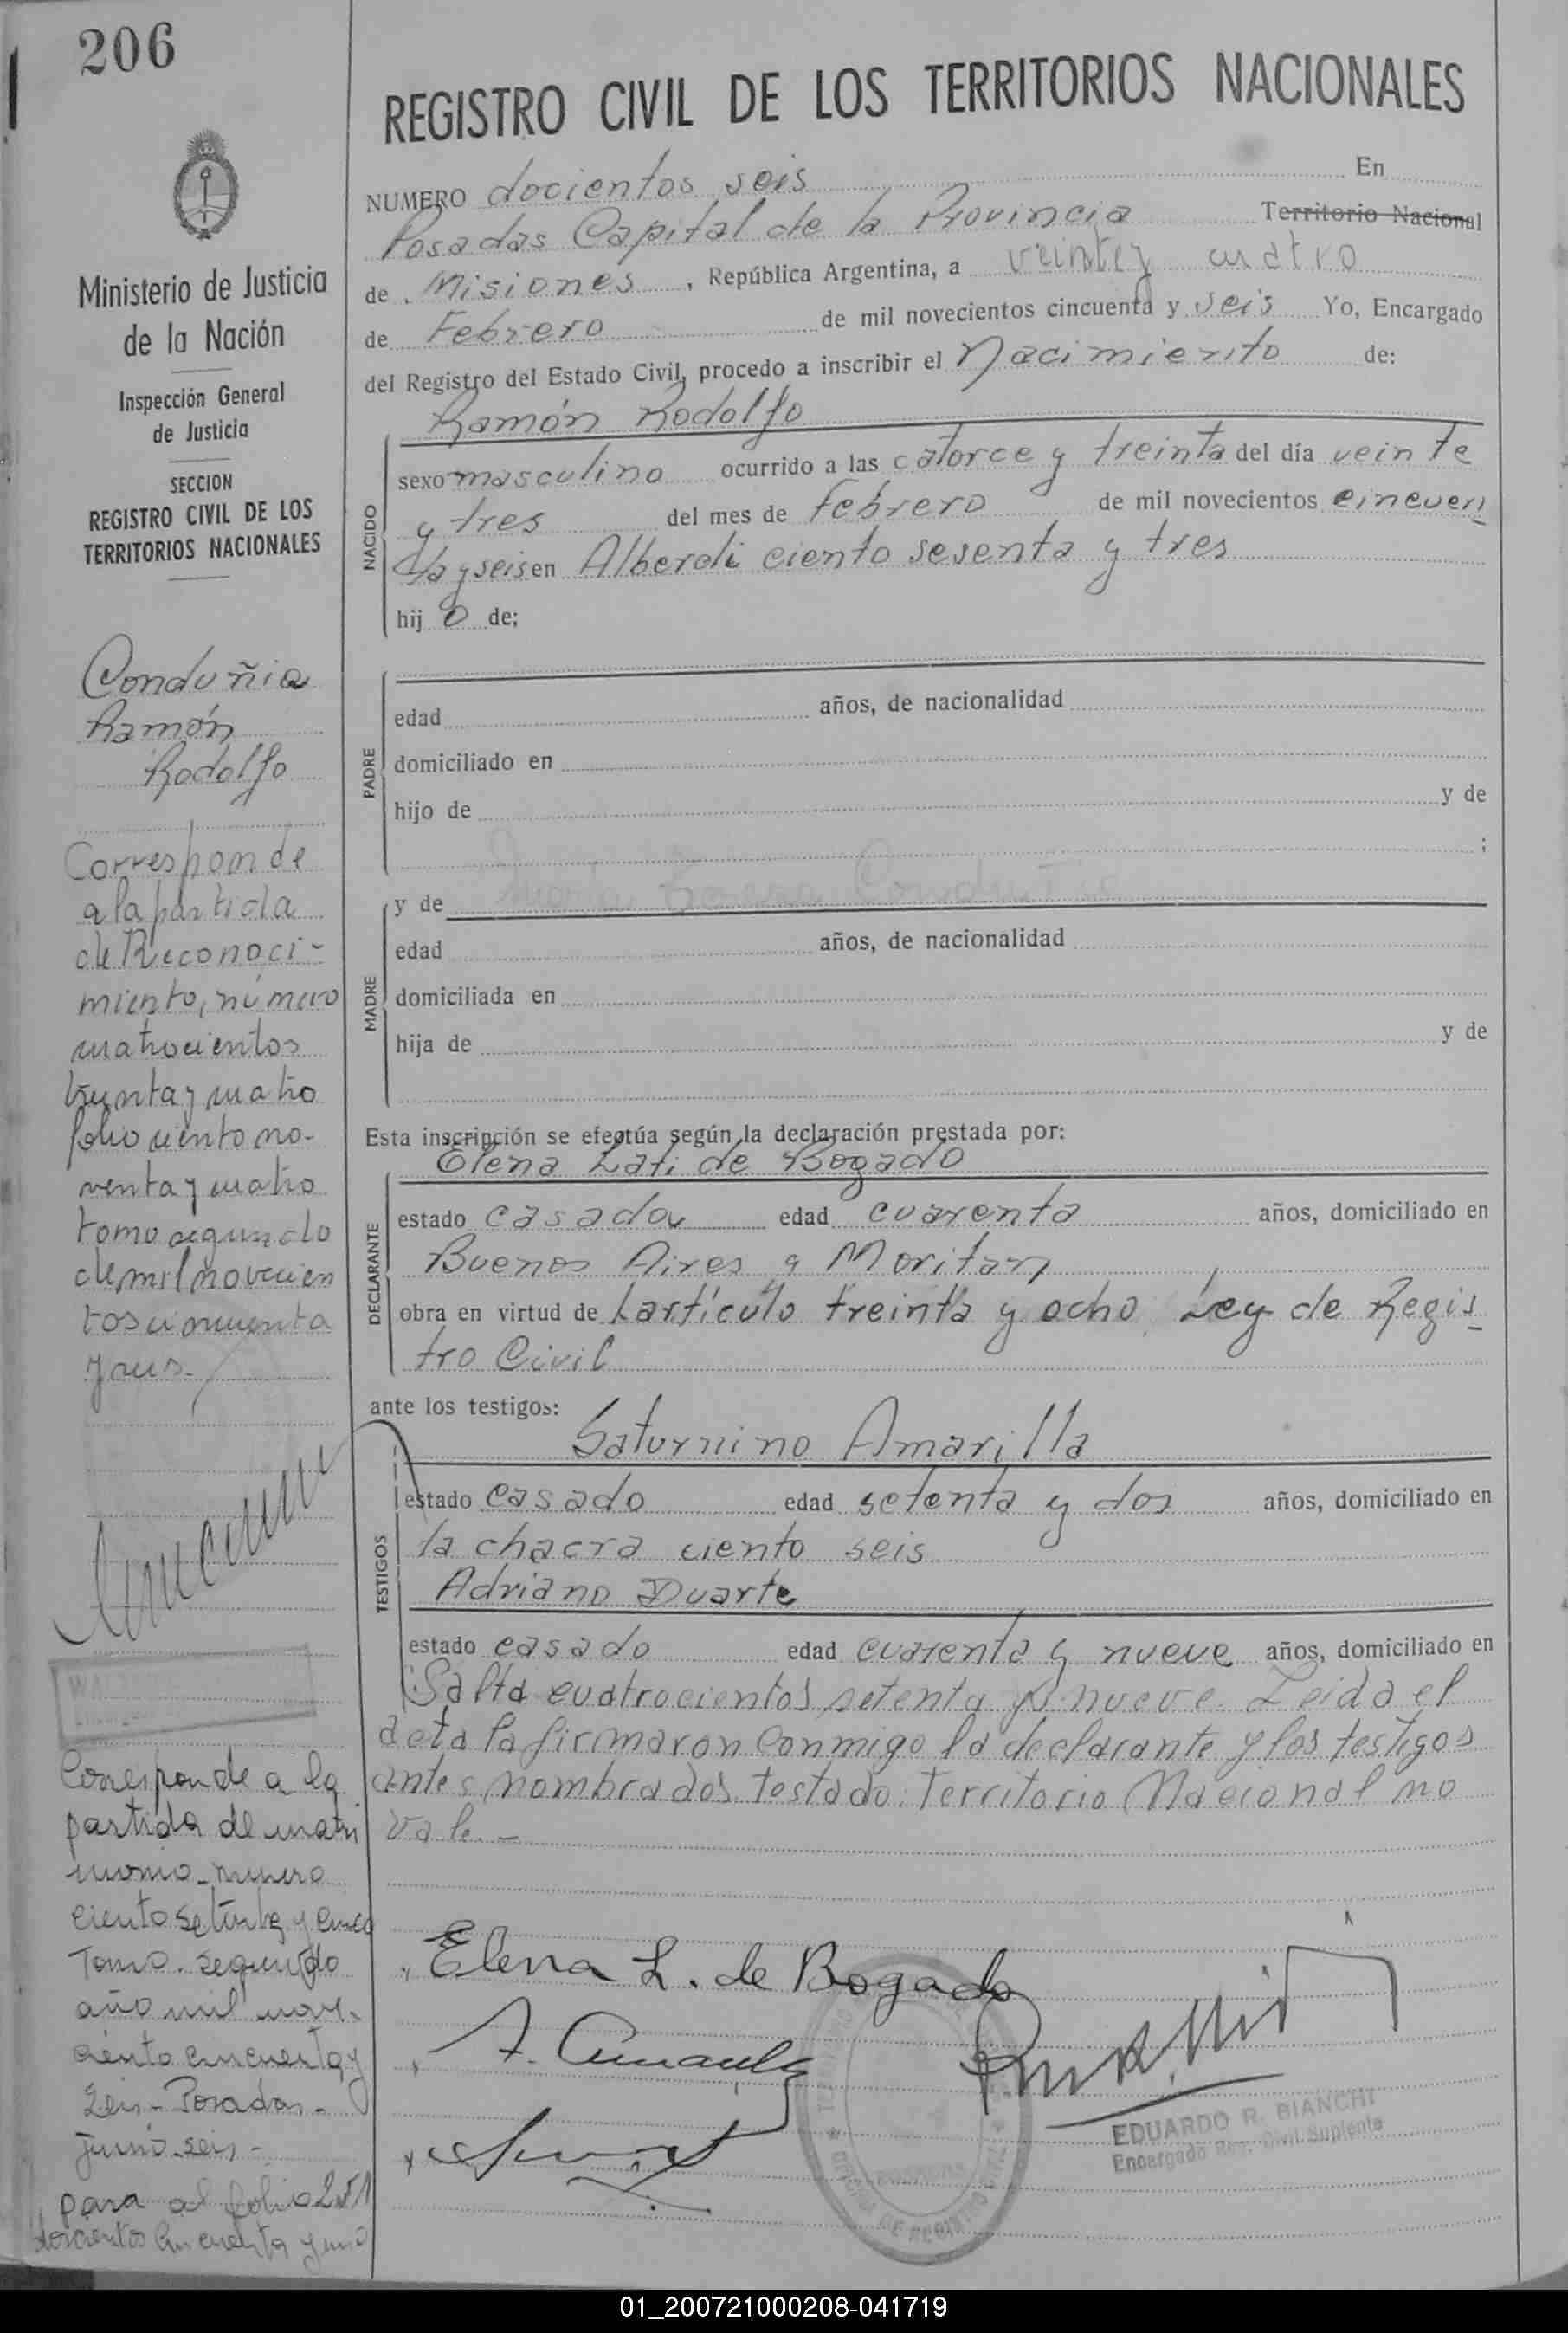 206
REGISTRO CIVIL DE LOS TERRITORIOS NACIONALES
Ministerio de Justicia
de la Nación
Inspección General
de Justicia
SECCION
REGISTRO CIVIL DE LOS
TERRITORIOS NACIONALES
Conduñia
Ramón
Rodolfo
Corresponde
a la partida
de Reconoci-
miento, número
cuatrocientos
treinta y cuatro
folio ciento no-
venta y cuatro
tomo segundo
de mil novecien
tos cincuenta
y seis.-
Corresponde a la
partida de matri
monio - numero
ciento setenta y cinco
Tomo. segundo
año mil nove-
ciento cincuenta y
seis - Posadas -
junio - seis -
pasa al folio 251
doscientos cincuenta y uno
NUMERO docientos seis En
Posadas Capital de la Provincia Territorio Nacional
de Misiones, República Argentina, a veinte y cuatro
de Febrero de mil novecientos cincuenta y seis Yo, Encargado
del Registro del Estado Civil, procedo a inscribir el Nacimiento de:
Ramón Rodolfo
NACIDO
sexo masculino ocurrido a las catorce y treinta del día veinte
y tres del mes de febrero de mil novecientos cincuen
ta y seis en Alberdi ciento sesenta y tres
hij o de;
PADRE
edad años, de nacionalidad
domiciliado en
hijo de y de
;
MADRE
y de
edad años, de nacionalidad
domiciliada en
hija de y de
Esta inscripción se efectúa según la declaración prestada por:
Elena Lati de Bogado
DECLARANTE
estado casada edad cuarenta años, domiciliado en
Buenos Aires a Moritan
obra en virtud de L artículo treinta y ocho Ley de Regis
tro Civil
ante los testigos:
Saturnino Amarilla
TESTIGOS
estado casado edad setenta y dos años, domiciliado en
la chacra ciento seis
Adriano Duarte
estado casado edad cuarenta y nueve años, domiciliado en
Salta cuatrocientos setenta y nueve. Leida el
acta la firmaron conmigo la declarante y los testigos
antes nombrados testado: Territorio Nacional no
vale.-
Elena L. de Bogado
EDUARDO R. BIANCHI
Encargado Reg. Civil Suplente
01_200721000208-041719